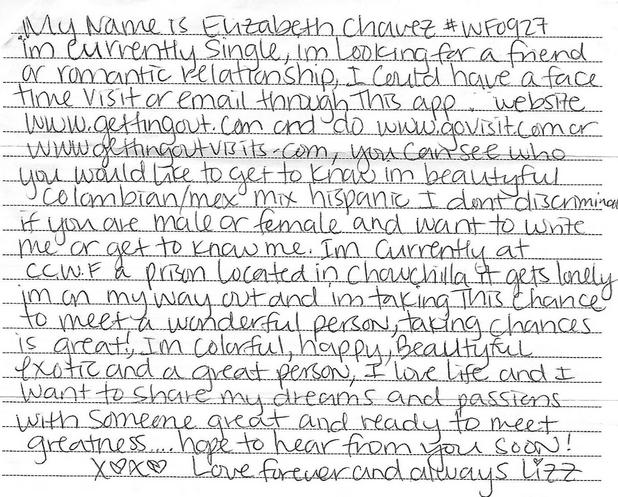 My Name is Elizabeth Chavez #WF0927
im currently single, im Looking for a friend
or romantic relationship, I could have a face
time visit or email through This app. website
www.gettingout.com and do www.govisit.com or
www.gettingoutvisits.com, you can see who
you would like to get to know im beautyful
Colombian/mex mix hispanic I dont discriminat
if you are male or female and want to write
me or get to know me. Im currently at
C.C.W.F a prison Located in Chowchilla It gets lonely
im on my way out and im taking This chance
to meet a wonderful person, taking chances
is great!, Im colorful, happy, Beautyful
exotic and a great person, I love life and I
want to share my dreams and passions
with someone great and ready to meet
greatness.... hope to hear from you soon!
X♡X♡ Love forever and always Lizz